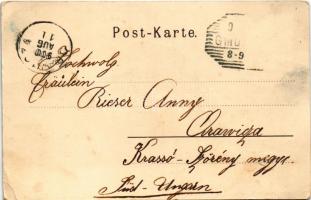 Post-Karte.
9
GMU
8-9
900
AUG
11
Hochwolg
Fräulein
Rieser Anny
Orawicza
Krassó-Szörény megye
Süd-Ungarn